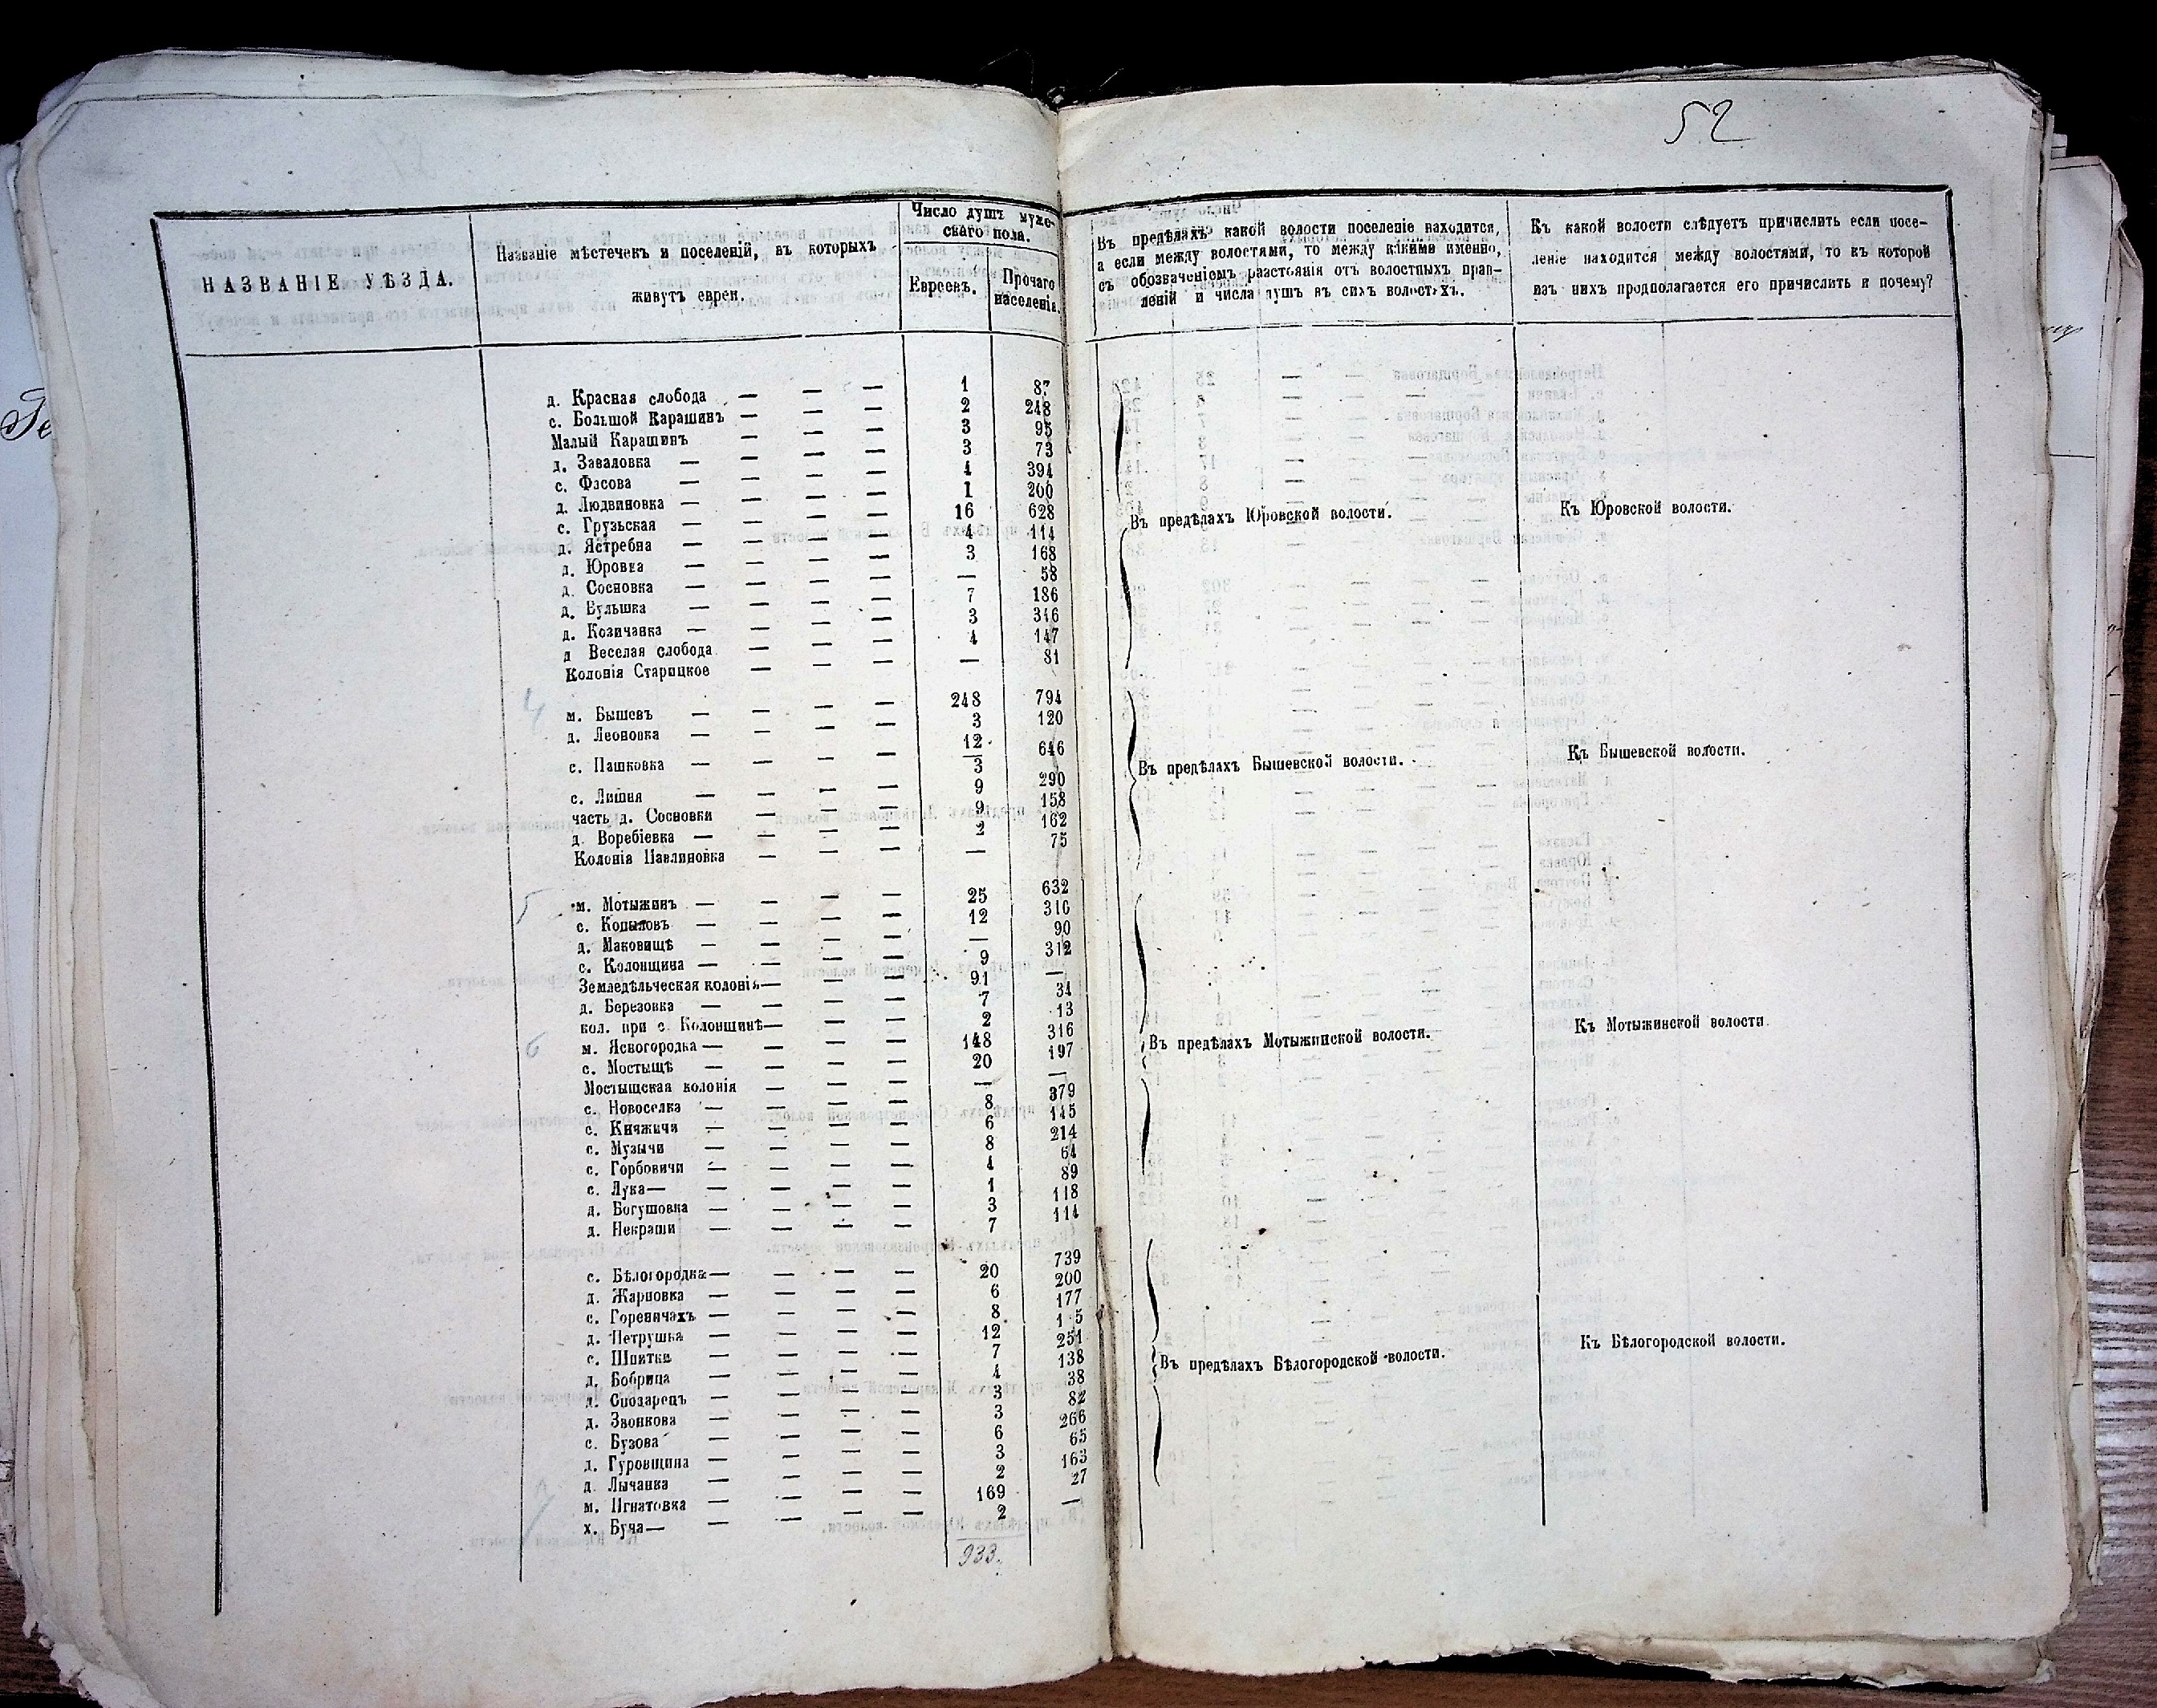 52
НАЗВАНІЕ УѢЗДА.
Названіе мѣстечекъ и поселеній, въ которыхъ
живутъ евреи.
Число душъ муже-
скаго пола.
Евреевъ.
Прочаго
населенія.
Въ предѣлахъ какой волости поселеніе находится,
а если между волостями, то между какими именно,
съ обозначеніемъ разстоянія отъ волостныхъ прав-
леній и числа душъ въ сихъ волостяхъ.
Къ какой волости слѣдуетъ причислить если посе-
леніе находится между волостями, то къ которой
изъ нихъ предполагается его причислить и почему?
д. Красная слобода — — — 1 87
с. Большой Карашинъ — — — 2 248
Малый Карашинъ — — — 3 95
д. Заваловка — — — — 3 73
с. Фасова — — — — 4 394
д. Людвиновка — — — — 1 200
с. Грузьская — — — — 16 628
д. Ястребна — — — — 4 114
д. Юровка — — — — 3 168
д. Сосновка — — — — — 58
д. Вульшка — — — — 7 186
д. Козичанка — — — — 3 316
д Веселая слобода — — — 4 147
Колонія Старицкое — — — — 81
Въ предѣлахъ Юровской волости.
Къ Юровской волости.
4
м. Бышевъ — — — — 248 794
д. Леоновка — — — — 3 120
с. Пашковка — — — — 12 3 646
с. Лишня — — — — 9 290
часть д. Сосновки — — — 9 158
д. Воребіевка — — — — 2 162
Колонія Павлиновка — — — — 75
Въ предѣлахъ Бышевской волости.
Къ Бышевской волости.
5
м. Мотыжинъ — — — — 25 632
с. Копыловъ — — — — 12 310
д. Маковищѣ — — — — — 90
с. Колонщина — — — — 9 312
Земледѣльческая колонія — — — 91 —
д. Березовка — — — — 7 34
кол. при с. Колонщинѣ — — — 2 13
6
м. Ясногородка — — — — 148 316
с. Мостыщѣ — — — — 20 197
Мостыщская колонія — — — — —
с. Новоселка — — — — 8 379
с. Княжичи — — — — 6 145
с. Музычи — — — — 8 214
с. Горбовичи — — — — 4 64
с. Лука — — — — 1 89
д. Богушовка — — — — 3 118
д. Некраши — — — — 7 114
Въ предѣлахъ Мотыжинской волости.
Къ Мотыжинской волости.
с. Бѣлогородка — — — — 20 739
д. Жарновка — — — — 6 200
с. Гореничахъ — — — — 8 177
д. Петрушка — — — — 12 1 5
с. Шпитки — — — — 7 251
д. Бобрица — — — — 4 138
д. Сподарецъ — — — — 3 38
д. Звонкова — — — — 3 82
с. Бузова — — — — 6 266
д. Гуровщина — — — — 3 65
д Лычанка — — — — 2 163
7
м. Игнатовка — — — — 169 27
х. Буча — — — — 2 —
Въ предѣлахъ Бѣлогородской волости.
Къ Бѣлогородской волости.
933.